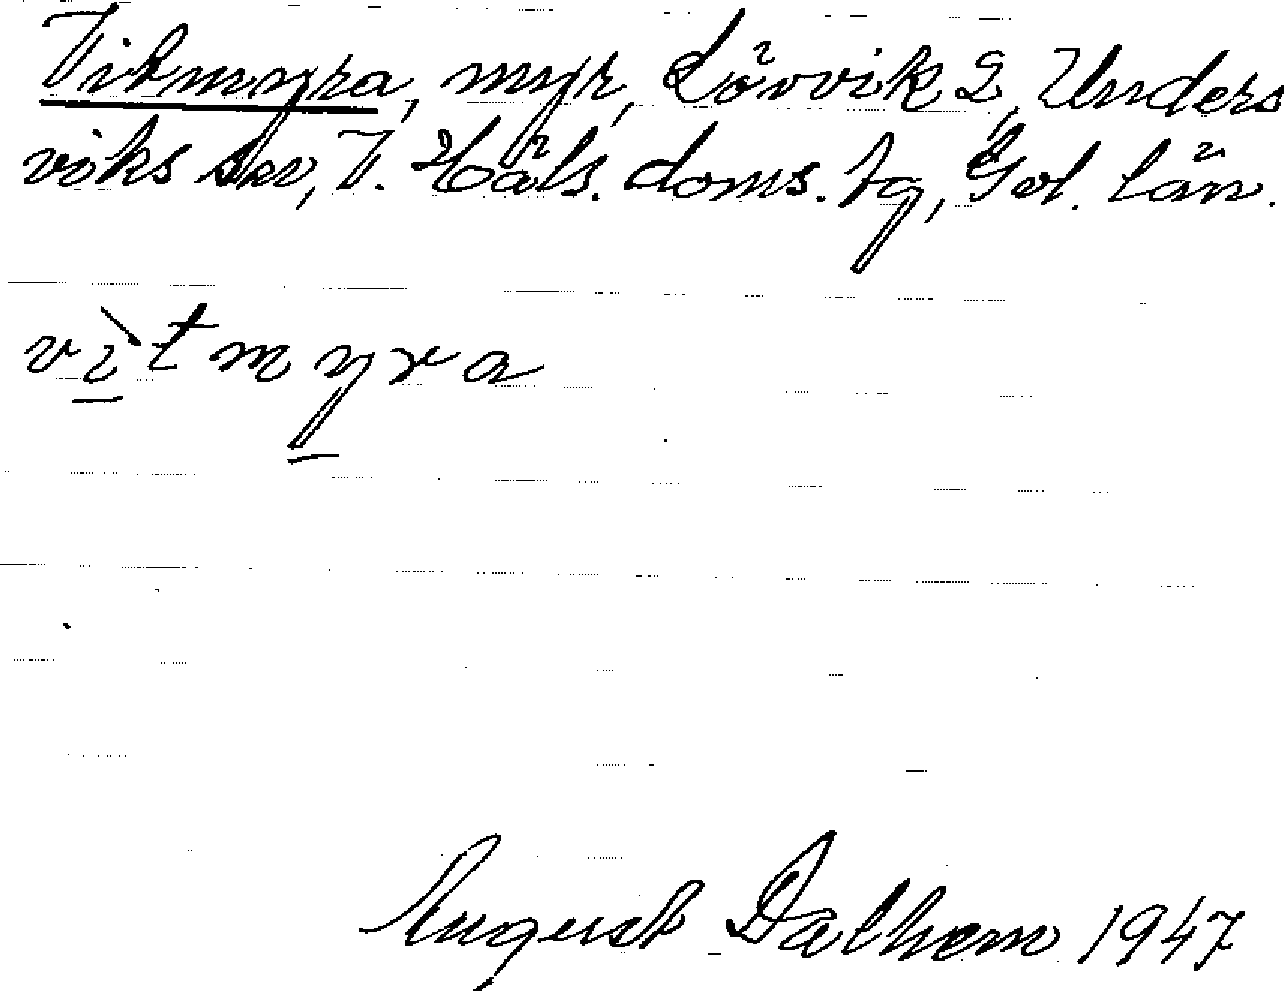 Vikmyra, myr, Lövvik 2, Unders
viks skn, V. Häls. doms. tg, Gvl. län.
vìtmyra
August Dalhem 1947